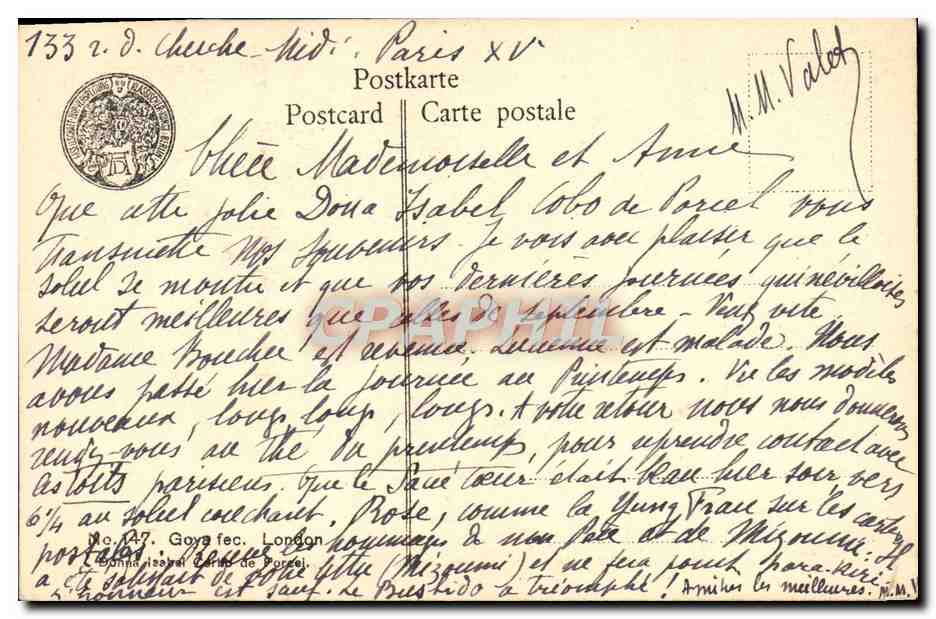 133 r. d. Cherche-Midi. Paris XVᵉ
M. M. Valet
Postkarte
Postcard Carte postale
Chère Mademoiselle et Amie
Que cette jolie Dona Isabel Cobo de Porcel vous
transmette mes souvenirs. Je vois avec plaisir que le
soleil se montre et que vos dernières journées quinévilloises
seront meilleures que celles de septembre - Vent vite
Madame Boucher est revenue. Lucienne est malade. Nous
avons passé hier la journée au Printemps. Vu les modèles
nouveaux, longs, longs, longs. A votre retour nous nous donnerons
rendez-vous au thé du printemps, pour reprendre contact avec
les toits parisiens. Que le Sacré Cœur était beau hier soir vers
6¼ au soleil couchant. Rose, comme la Yung Frau sur les cartes
postales. les hommages de mon Père et de Mizoumi. Il
No. 147. Goya fec. London
Donna Isabel Corbo de Porcel.
a été satisfait de votre lettre (Mizoumi) et ne fera point hara-kiri.
L'honneur est sauf. Le Bushido a triomphé! Amitiés les meilleures. M. M. V
CPAPHIL